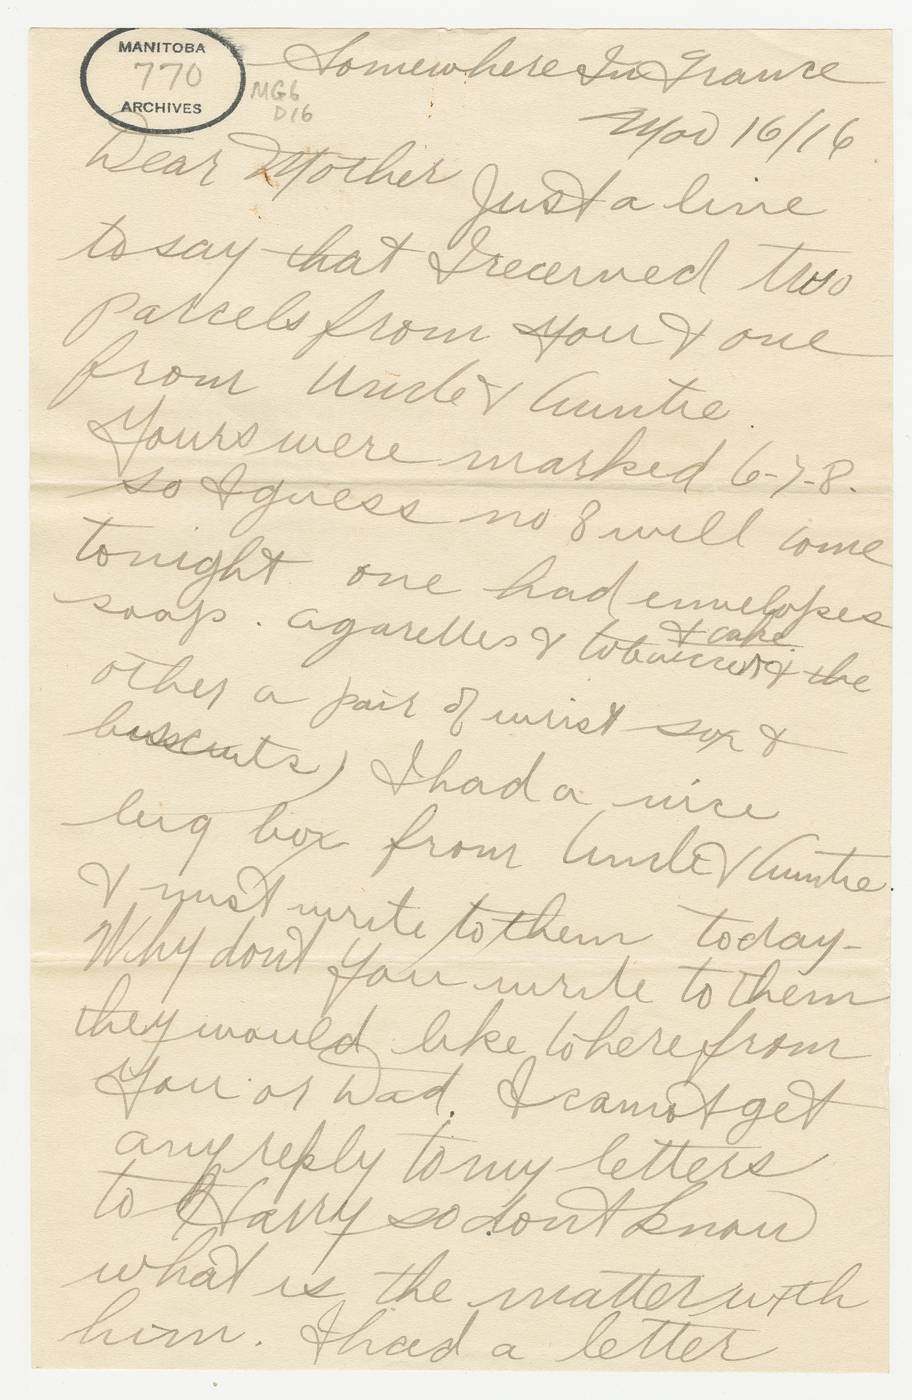 MANITOBA
770
ARCHIVES
MG6
D16
Somewhere In France
Nov 16/16.
Dear Mother
Just a line
to say that I recerved two
parcels from you & one
from Uncle & Auntie.
Yours were marked 6-7-8.
so I guess no 8 will come
tonight one had envelopes
soap. cigarettes & tobacco & cake & the
other a pair of wrist sox &
busscuts) I had a nice
big box from Uncle & Auntie.
& must write to them today-
Why dont you write to them
they would like to here from
you or Dad. I cannot get
any reply to my letters
to Harry so dont know
what is the matter with
him. I had a letter